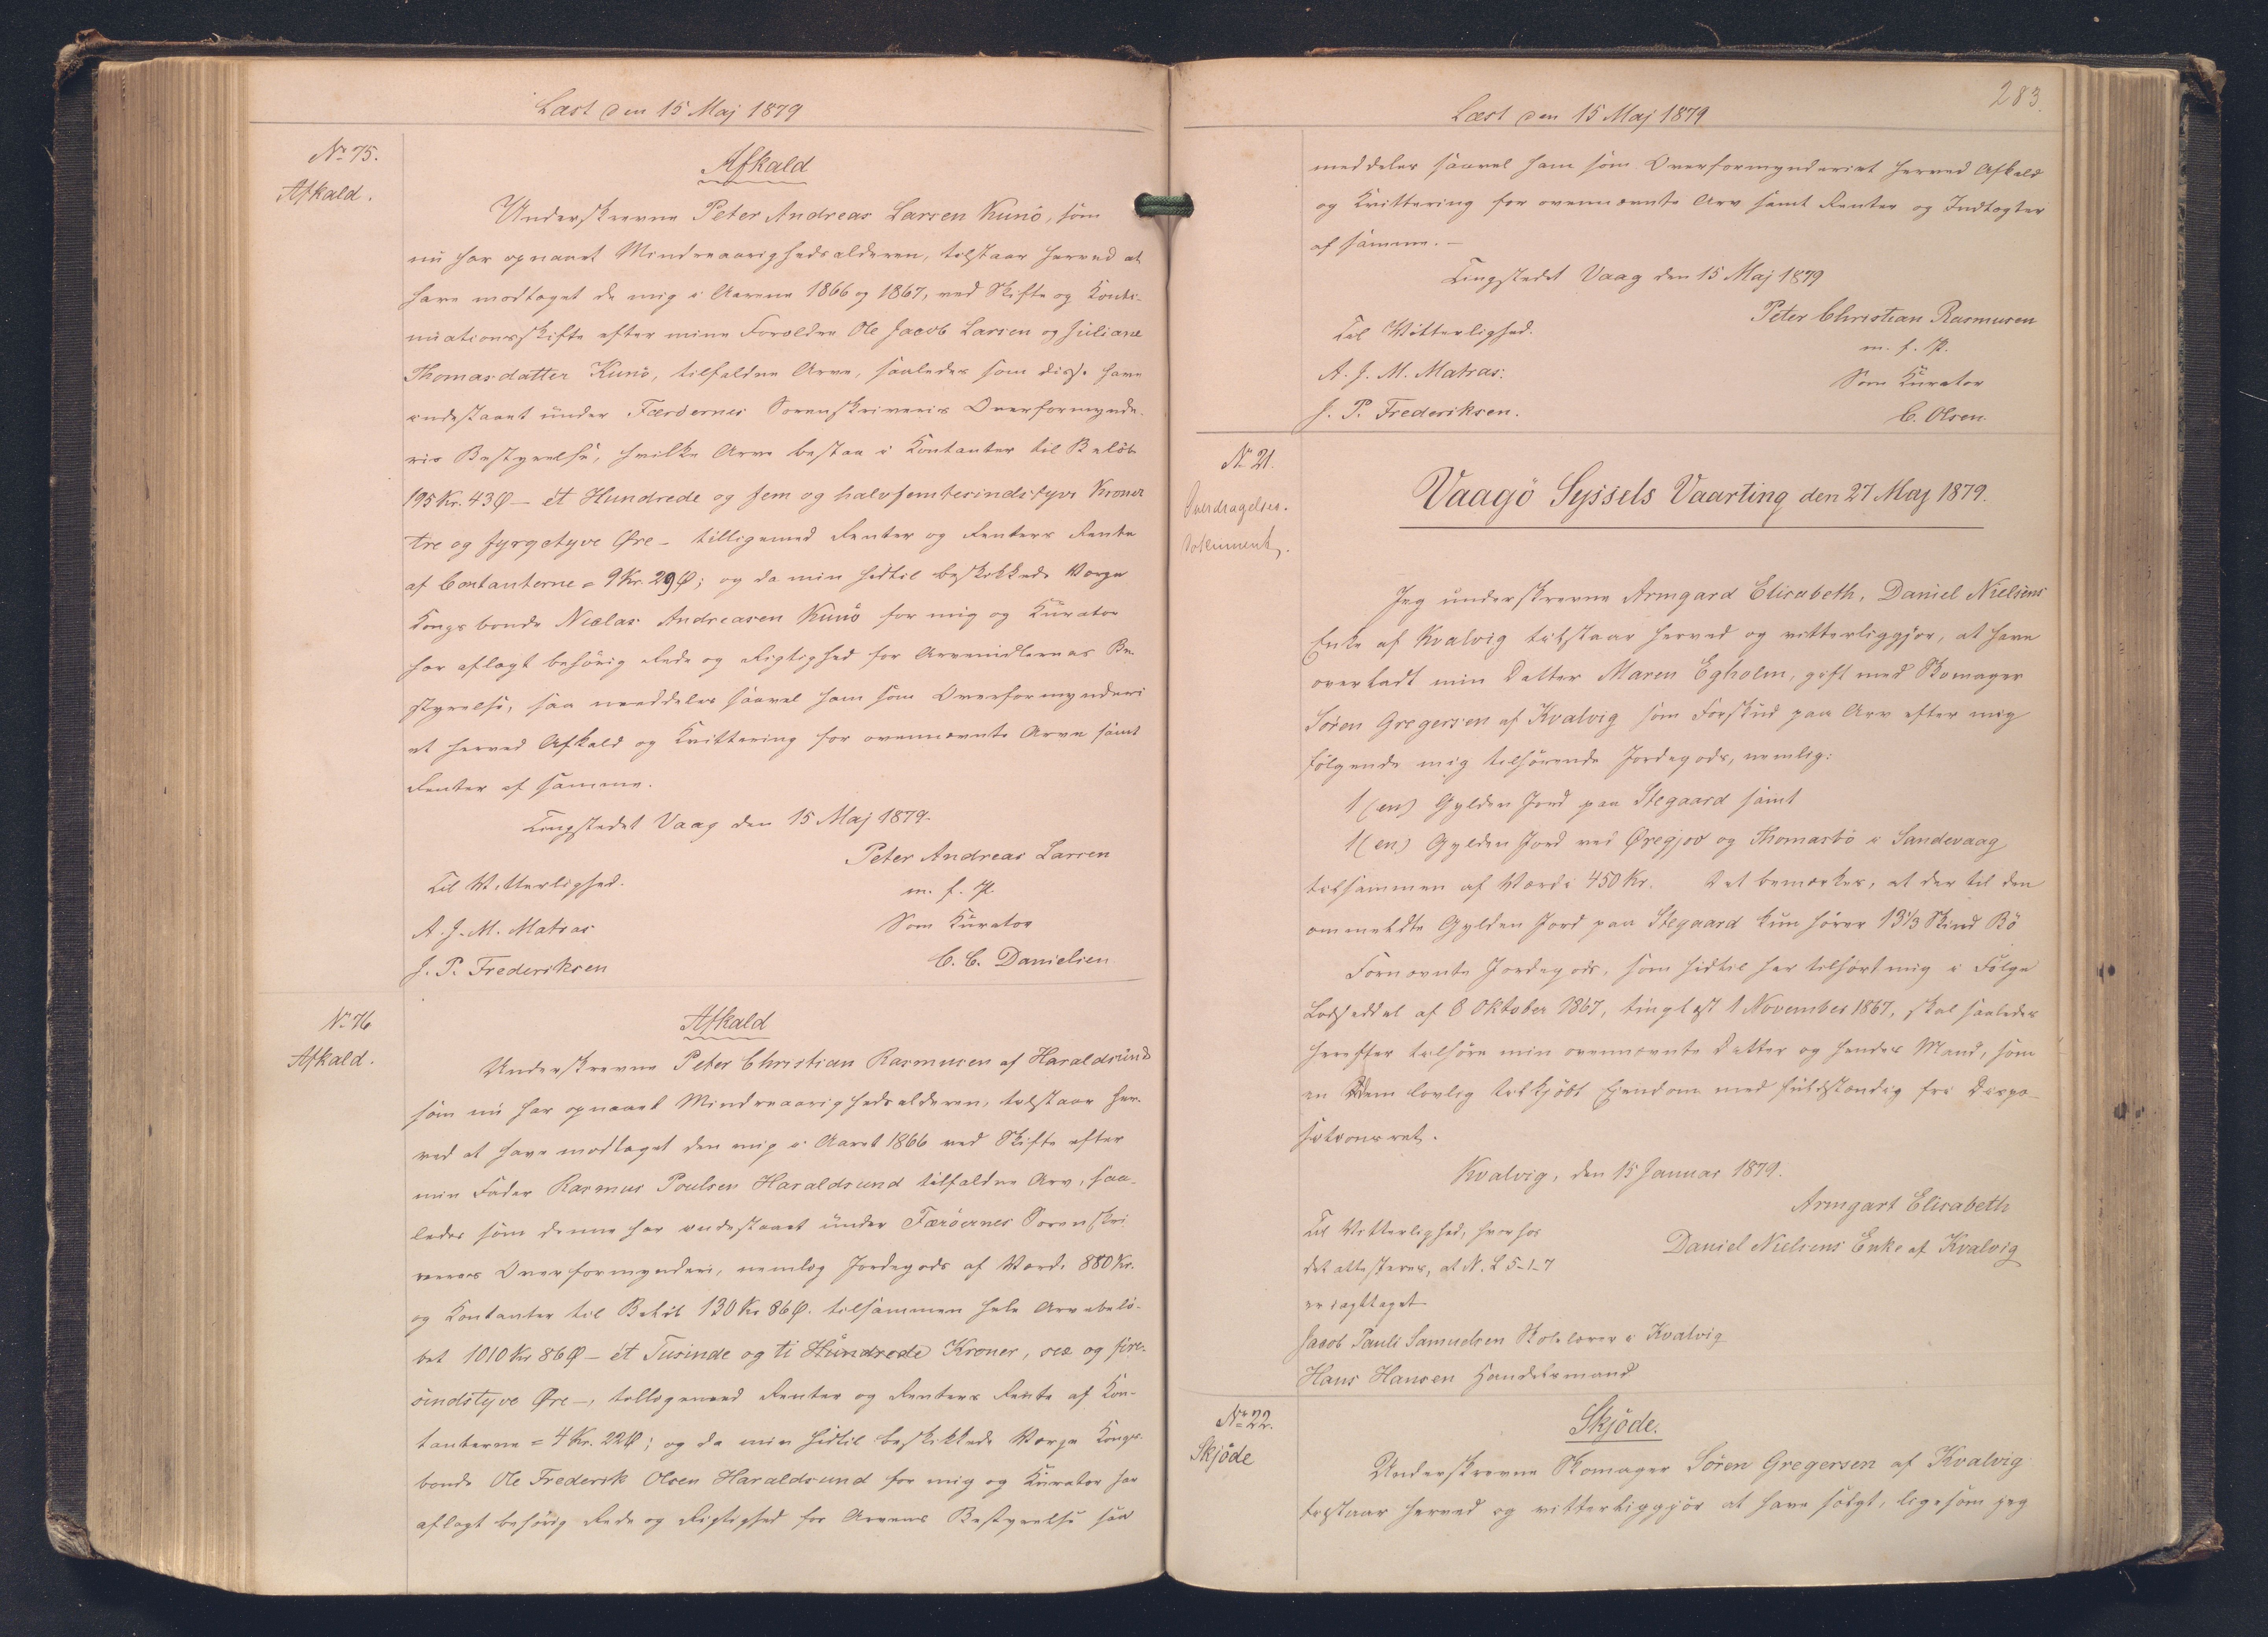 Læst den 15 Maj 1879
No 75.
Afkald.
Afkald
Underskrevne Peter Andreas Larsen Kunö, som
nu har opnaaet Mindreaarighedsalderen, tilstaar herved at
have modtaget de mig i Aarene 1866 og 1867, ved Skifte og Konti-
nuationsskifte efter mine Forældre Ole Jacob Larsen og Juliane
Thomasdatter Kunö, tilfaldne Arve, saaledes som disse have
indestaaet under Færöernes Sorenskriveris Overformynde-
ris Bestyrelse, hvilke Arve bestaa i Kontanter til Belöb
195 Kr. 43 Ø – ét Hundrede og fem og halvfemtesindstyve Kroner
tre og fyrgetyve Øre – tilligemed Renter og Renters Rente
af Contanterne = 9 Kr. 29 Ø; og da min hidtil beskikkede Værge
Kongsbonde Niclas Andreasen Kunö for mig og Kurator
har aflagt behörig Rede og Rigtighed for Arvemidlernes Be-
styrelse, saa meddeles saavel ham som Overformynderi
et herved Afkald og Kvittering for ovennævnte Arve samt
Renter af samme.
Tingstedet Vaag den 15 Maj 1879.
Peter Andreas Larsen
Til Vitterlighed.
m. f. P.
A. J. M. Matras
Som Kurator
J. P. Frederiksen
C. C. Danielsen
No 76
Afkald.
Afkald
Underskrevne Peter Christian Rasmusen af Haraldsund
som nu har opnaaet Mindreaarighedsalderen, tilstaar her-
ved at have modtaget den mig i Aaret 1866 ved Skifte efter
min Fader Rasmus Poulsen Haraldsund tilfaldne Arv, saa-
ledes som denne har indestaaet under Færöernes Sorenskri
veries Overformynderi, nemlig Jordegods af Værdi 880 Kr.
og Kontanter til Belöb 130 Kr 86 Ø. tilsammen hele Arvebelö-
bet 1010 Kr 86 Ø – ét Tusinde og ti Hundrede Kroner, sex og fire-
sindstyve Øre –, tilligemed Renter og Renters Rente af Kon-
tanterne = 4 Kr. 22 Ø; og da min hidtil beskikkede Værge Kongs-
bonde Ole Frederik Olsen Haraldsund for mig og Kurator har
aflagt behörig Rede og Rigtighed for Arvens Bestyrelse saa
283.
Læst den 15 Maj 1879
meddeles saavel ham som Overformynderiet herved Afkald
og Kvittering for ovennævnte Arv samt Renter og Indtægter
af samme. –
Tingstedet Vaag den 15 Maj 1879
Peter Christian Rasmusen
Til Vitterlighed.
m. f. P.
A. J. M. Matras.
Som Kurator
J. P. Frederiksen.
C. Olsen.
No 21.
Overdragelses-
dokument.
Vaagö Syssels Vaarting den 27 Maj 1879.
Jeg underskrevne Armgard Elisabeth, Daniel Nielsens
Enke af Kvalvig tilstaar herved og vitterliggjør, at have
overladt min Datter Maren Egholm, gift med Skomager
Sören Gregersen af Kvalvig som Forskud paa Arv efter mig
følgende mig tilhörende Jordegods, nemlig:
1 (en) Gylden Jord paa Stegaard samt
1 (en) Gylden Jord ved Øregjov og Thomasbö i Sandevaag
tilsammen af Værdi 450 Kr. Det bemærkes, at der til den
ommeldte Gylden Jord paa Stegaard kun hörer 13 1/3 Skind Bö
Fornævnte Jordegods, som hidtil har tilhört mig i Fölge
Lodseddel af 8 Oktober 1867, tinglæst 1 November 1867, skal saaledes
herefter tilhöre min ovennævnte Datter og hendes Mand, som
en Dem lovlig tilkjöbt Ejendom med fuldstændig fri Dispo-
sitionsret.
Kvalvig, den 15 Januar 1879.
Armgart Elisabeth
Til Vitterlighed, hvorhos
Daniel Nielsens Enke af Kvalvig
det attesteres, at N. L 5-1-7
er iagttaget
Jacob Pauli Samuelsen Skolelærer i Kvalvig
Hans Hansen Handelsmand
No 22.
Skjöde
Skjöde.
Underskrevne Skomager Sören Gregersen af Kvalvig
tilstaar herved og vitterliggjör at have solgt, ligesom jeg